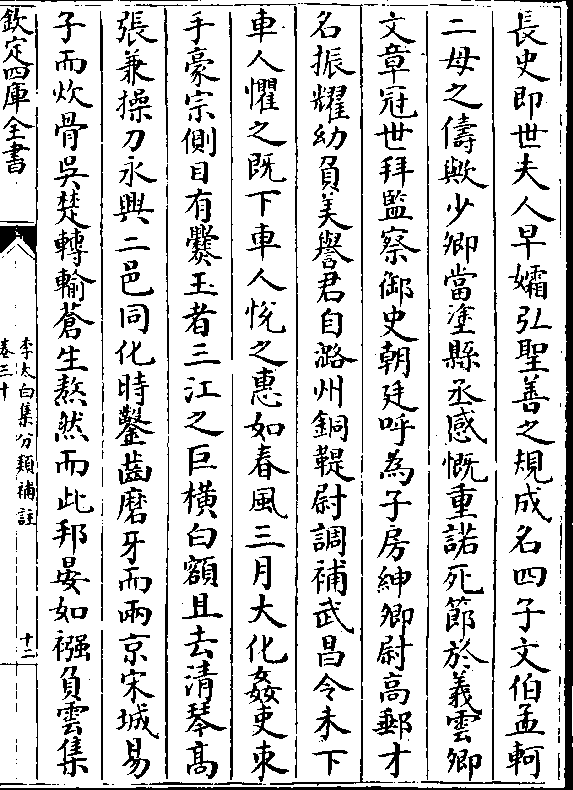 長史即世夫人早孀弘聖善之規成名四子文伯孟軻
二母之儔歟少卿當塗縣丞感慨重諾死節於義雲卿
文章冠世拜監察御史朝廷呼為子房紳卿尉高郵才
名振耀幼負美譽君自潞州銅鞮尉調補武昌令未下
車人懼之既下車人悅之惠如春風三月大化姦吏束
手豪宗側目有爨玉者三江之巨橫白額且去清琴高
張兼操刀永興二邑同化時鑿齒磨牙而兩京宋城易
子而炊骨吳楚轉輸蒼生熬然而此邦晏如襁負雲集
欽定四庫全書
李太白集分類補註
卷三十
十二